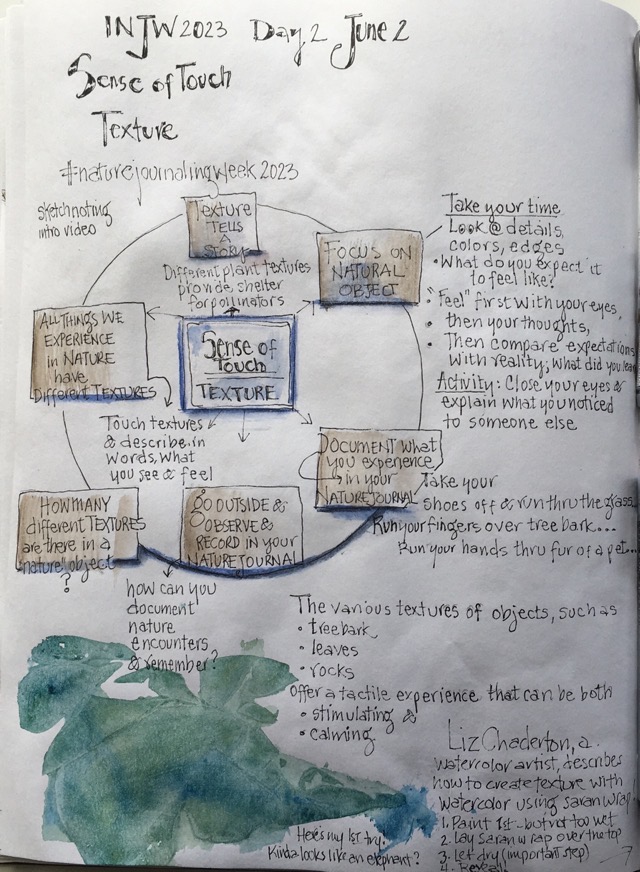 INJW2023 Day 2 June 2
Sense of Touch
Texture
#naturejournalingweek2023
sketchnoting
intro video
Texture
TELLS
A
STORY
Different plant textures
provide shelter
for pollinators
FOCUS ON
NATURAL
OBJECT
Take your time
Look @ details,
colors, edges
• What do you expect it
to feel like?
• "Feel" first with your eyes,
• then your thoughts,
• Then compare expectations
with reality; what did you
Activity: Close your eyes &
explain what you noticed
to someone else
ALL THINGS WE
EXPERIENCE
in NATURE
have
Different TEXTURES
Sense of
Touch
TEXTURE
Touch textures
& describe in
words, what
you see & feel
DOCUMENT what
you experience
in your
NATURE JOURNAL
Take your
shoes off & run thru the grass...
Run your fingers over tree bark...
Run your hands thru fur of a pet...
HOW MANY
different TEXTURES
are there in a
natural object
?
GO OUTSIDE &
OBSERVE &
RECORD in your
NATURE JOURNAL
how can you
document
nature
encounters
& remember?
The various textures of objects, such as
• tree bark
• leaves
• rocks
offer a tactile experience that can be both
• stimulating &
• calming
Liz Chaderton, a
watercolor artist, describes
how to create texture with
watercolor using saran wrap!
1. Paint 1st - but not too wet
2. Lay saran wrap over the top
3. Let dry (important step)
4. Reveal!
Here's my 1st try.
Kinda looks like an elephant?
7